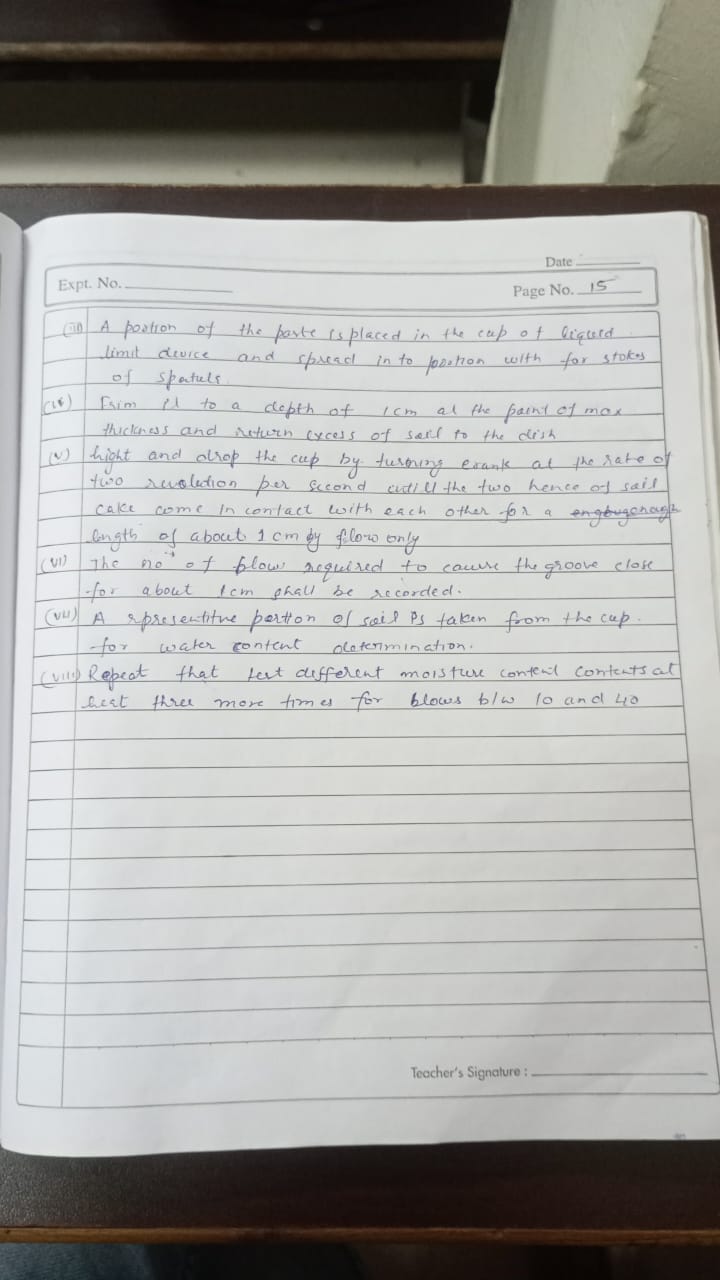 Date
Expt. No.
Page No. 15
(iii) A portion of the paste is placed in the cup of liquid
limit device and spread in to position with for stokes
of spatuls.
(iv) Trim it to a depth of 1cm at the paint of max
thickness and return excess of soil to the dish
(v) light and drop the cup by turning crank at the rate of
two revolution per second until the two hence of soil
cake come in contact with each other for a
length of about 1 cm by flow only
(vi) The no. of blow required to cause the groove close
for about 1cm shall be recorded.
(vii) A representitve portion of soil is taken from the cup.
for water content determination.
(viii) Repeat that test different moisture content contents at
least three more times for blows b/w 10 and 40
Teacher's Signature :